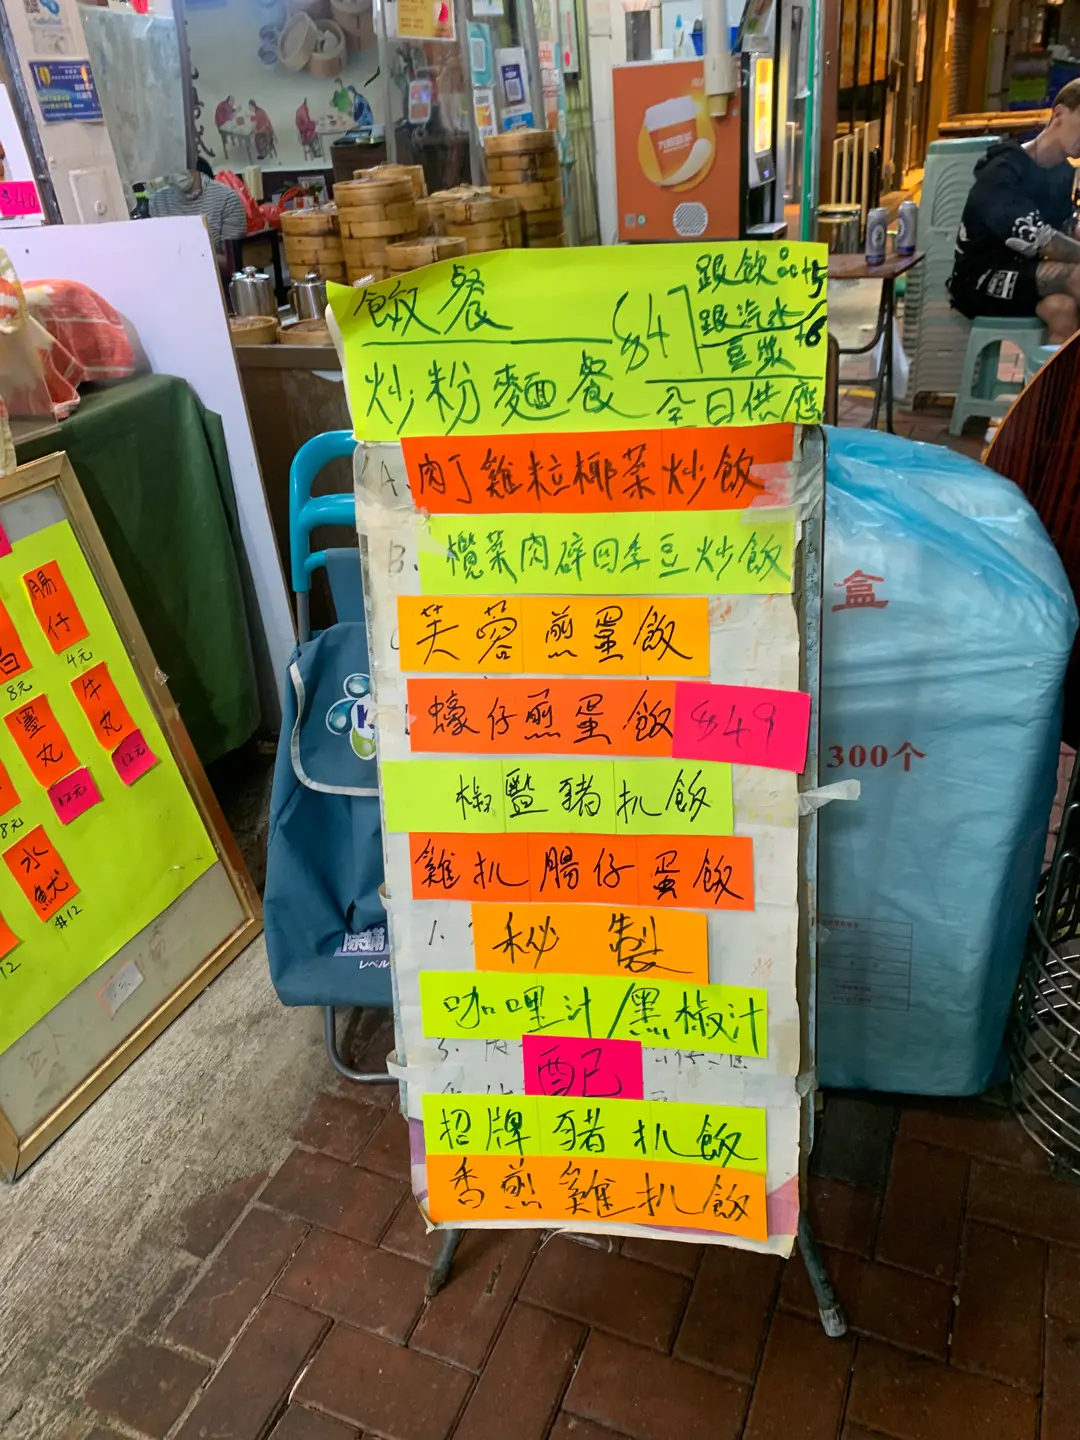 飯餐
炒粉麵餐
$47
跟飲品+5
跟汽水+6
豆漿
全日供應
A. 肉丁雞粒椰菜炒飯
B. 欖菜肉碎四季豆炒飯
芙蓉煎蛋飯
蠔仔煎蛋飯 $49
椒鹽豬扒飯
雞扒腸仔蛋飯
1. 秘製
咖哩汁/黑椒汁
3.
配已
招牌豬扒飯
香煎雞扒飯
腸仔
4元
8元
牛丸
12元
墨丸
12元
8元
水魷
#12
12
$40
盒
300个
レベル